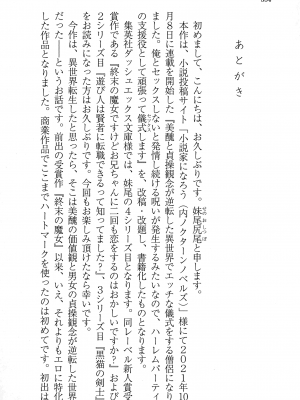 あとがき
初めまして、こんにちは、お久しぶりです。妹尾尻尾と申します。
本作は、小説投稿サイト「小説家になろう（内ノクターンノベルズ）」様にて2021年10
月8日に連載を開始した『美醜と貞操観念が逆転した異世界でエッチな儀式をする僧侶になり
ました。俺とセックスしないと発情し続ける呪いが発生するみたいなので、ハーレムパーティ
の支援役として頑張って儀式します』を、改稿・改題し、書籍化したものとなります。
集英社ダッシュエックス文庫様では、妹尾の4シリーズ目となります。同レーベル新人賞受
賞作である『終末の魔女ですけどお兄ちゃんに二回も恋をするのはおかしいですか？』および
2シリーズ目『遊び人は賢者に転職できるって知ってました？』、3シリーズ目『黒猫の剣士』
をお読みになった方はお久しぶりです。今回もお楽しみ頂けたなら幸いです。
今作は、異世界転生したと思ったら、そこは美醜の価値観と男女の貞操観念が逆転した世界
だった――というお話です。前出の受賞作『終末の魔女』以来、いえ、それよりもエロに特化
した作品となりました。商業作品でここまでハートマークを使ったのは初めてです。初出は